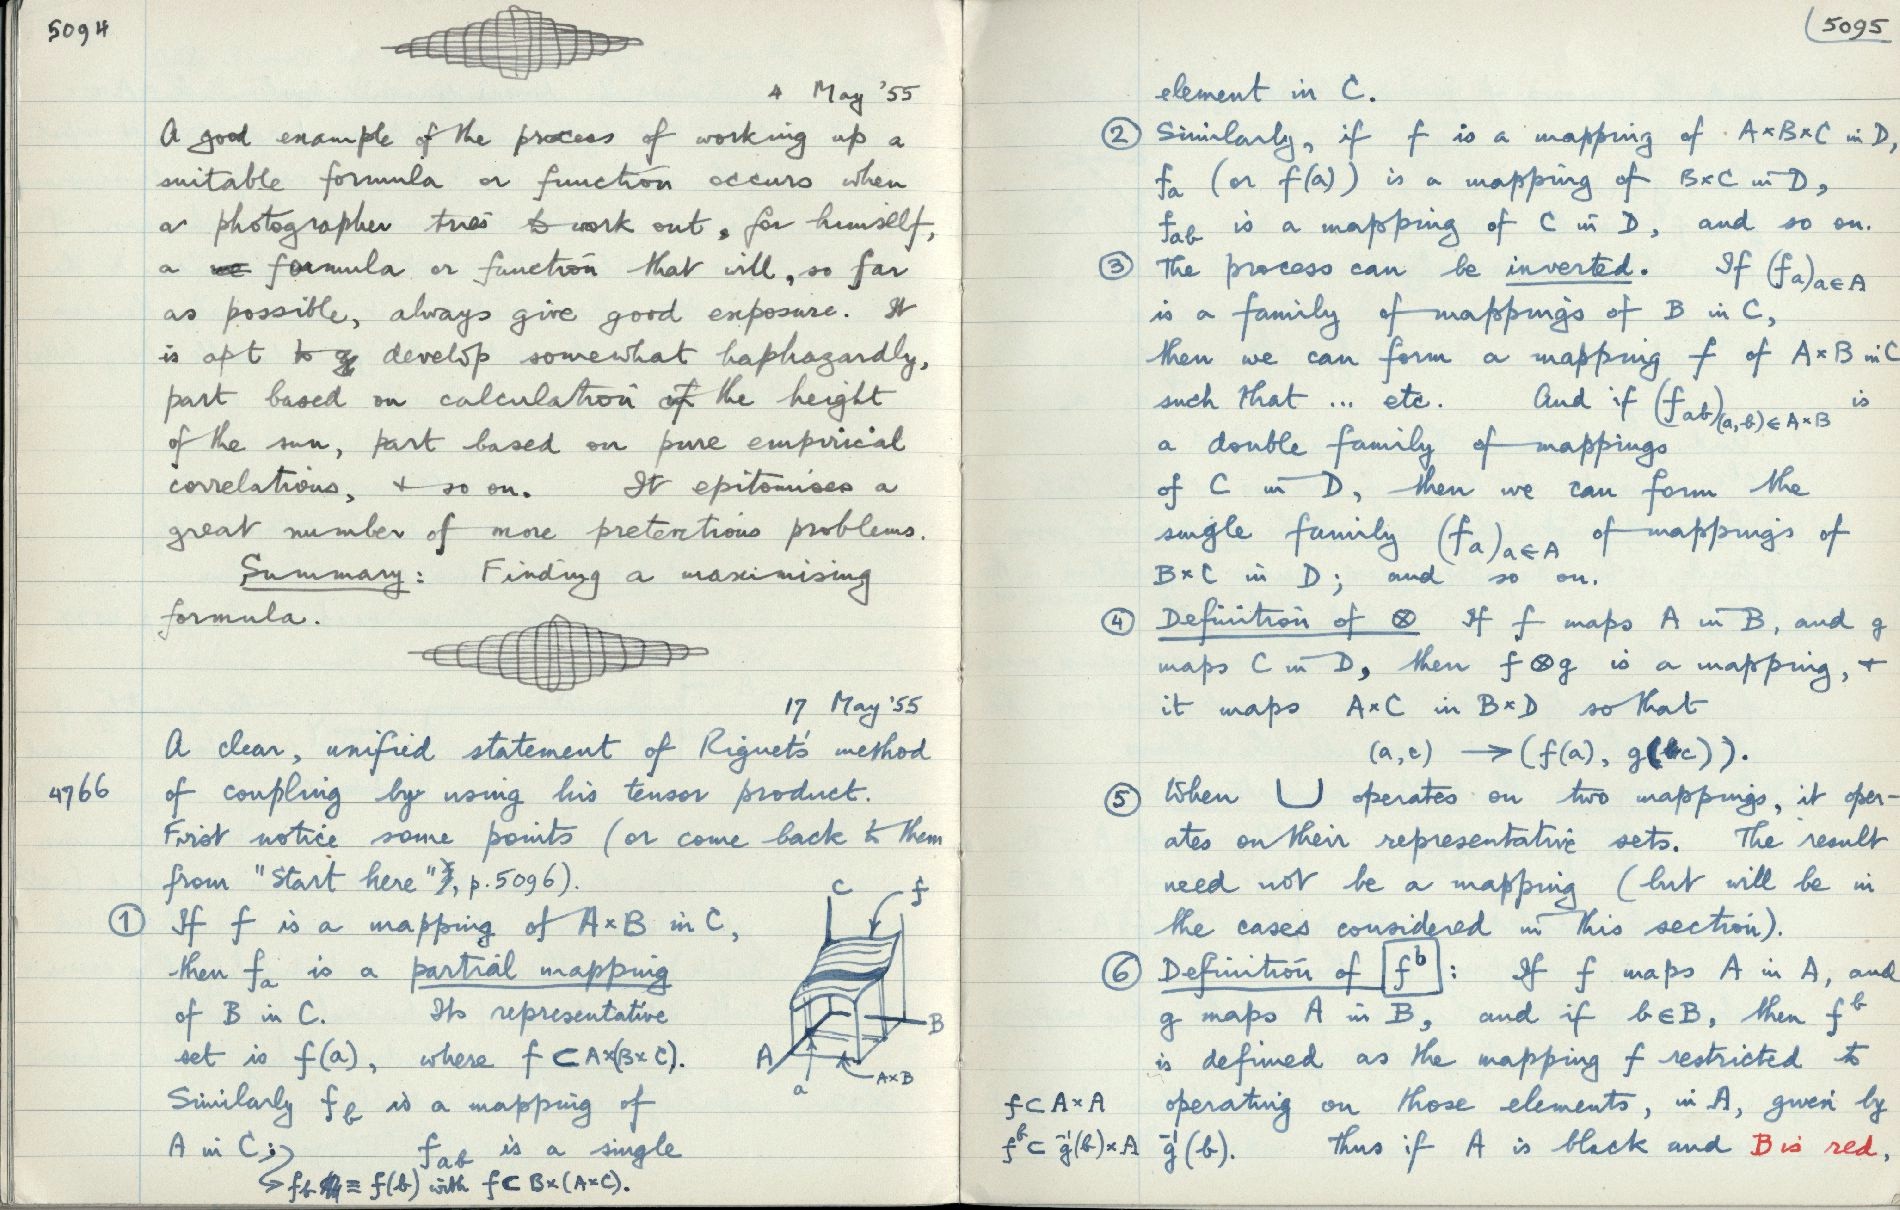 5094
4 May '55
A good example of the process of working up a
suitable formula or function occurs when
a photographer tries to work out, for himself,
a formula or function that will, so far
as possible, always give good exposure. It
is apt to develop somewhat haphazardly,
part based on calculation of the height
of the sun, part based on pure empirical
correlations, + so on. It epitomises a
great number of more pretentious problems.
Summary: Finding a maximising
formula.
17 May '55
A clear, unified statement of Riguet's method
4766 of coupling by using his tensor product.
First notice some points (or come back to them
from "Start here", p.5096).
① If f is a mapping of A×B in C,
then fₐ is a partial mapping
of B in C. Its representative
set is f(a), where f ⊂ A×(B×C).
Similarly f_b is a mapping of
A in C; f_ab is a single
f_b ≡ f(b) with f ⊂ B×(A×C).
C f
A a A×B B
5095
element in C.
② Similarly, if f is a mapping of A×B×C in D,
fₐ (or f(a)) is a mapping of B×C in D,
f_ab is a mapping of C in D, and so on.
③ The process can be inverted. If (fₐ)a∈A
is a family of mappings of B in C,
then we can form a mapping f of A×B in C
such that ... etc. And if (f_ab)(a,b)∈A×B is
a double family of mappings
of C in D, then we can form the
single family (fₐ)a∈A of mappings of
B×C in D; and so on.
④ Definition of ⊗ If f maps A in B, and g
maps C in D, then f⊗g is a mapping, +
it maps A×C in B×D so that
(a,c) → (f(a), g(c)).
⑤ When ∪ operates on two mappings, it oper-
ates on their representative sets. The result
need not be a mapping (but will be in
the cases considered in this section).
⑥ Definition of f^b: If f maps A in A, and
g maps A in B, and if b∈B, then f^b
is defined as the mapping f restricted to
f⊂A×A operating on those elements, in A, given by
f^b ⊂ g⁻¹(b)×A g⁻¹(b). Thus if A is black and B is red,